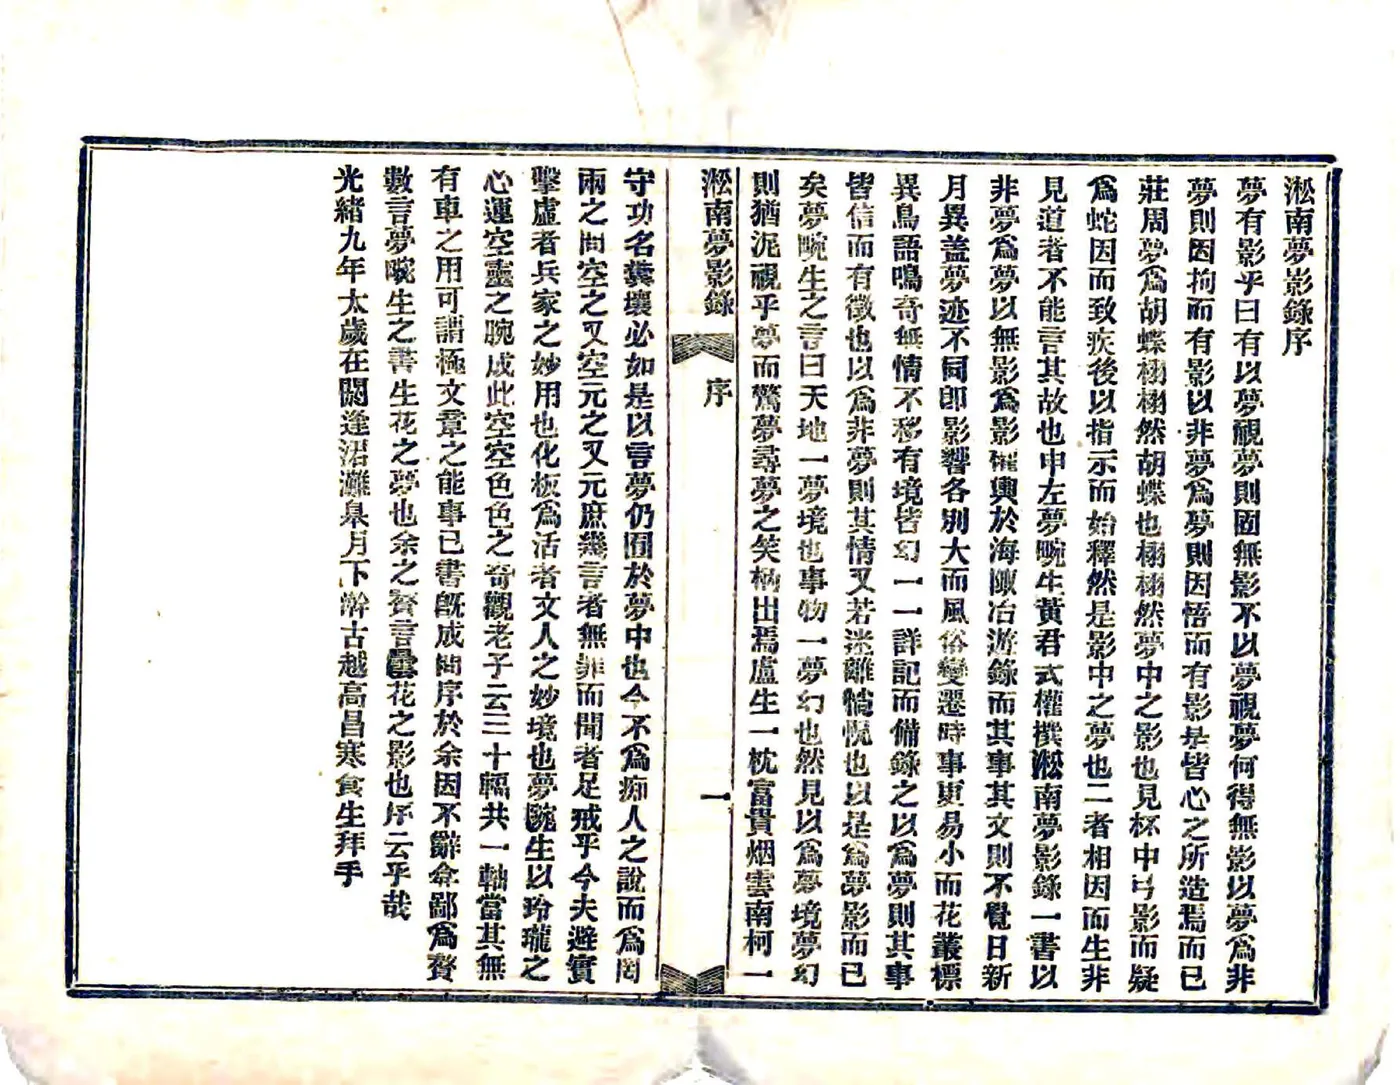 淞南夢影錄序
夢有影乎曰有以夢視夢則固無影不以夢視夢何得無影以夢爲非
夢則因拘而有影以非夢爲夢則因悟而有影是皆心之所造焉而已
莊周夢爲胡蝶栩栩然胡蝶也栩栩然夢中之影也見杯中弓影而疑
爲蛇因而致疾後以指示而始釋然是影中之夢也二者相因而生非
見道者不能言其故也申左夢畹生黃君式權撰淞南夢影錄一書以
非夢爲夢以無影爲影權輿於海陬冶遊錄而其事其文則不覺日新
月異蓋夢迹不同卽影響各別大而風俗變遷時事更易小而花叢標
異鳥語鳴奇無情不移有境皆幻一一詳記而備錄之以爲夢則其事
皆信而有徵也以爲非夢則其情又若迷離惝恍也以是爲夢影而已
矣夢畹生之言曰天地一夢境也事物一夢幻也然見以爲夢境夢幻
則猶泥視乎夢而驚夢尋夢之笑柄出焉盧生一枕富貴烟雲南柯一
淞南夢影錄
序
一
守功名糞壤必如是以言夢仍囿於夢中也今不爲痴人之說而爲罔
兩之問空之又空元之又元庶幾言者無罪而聞者足戒乎今夫避實
擊虛者兵家之妙用也化板爲活者文人之妙境也夢畹生以玲瓏之
心運空靈之腕成此空空色色之奇觀老子云三十輻共一軸當其無
有車之用可謂極文章之能事已書旣成問序於余因不辭弇鄙爲贅
數言夢畹生之書生花之夢也余之贅言曇花之影也序云乎哉
光緒九年太歲在閼逢涒灘皋月下澣古越高昌寒食生拜手